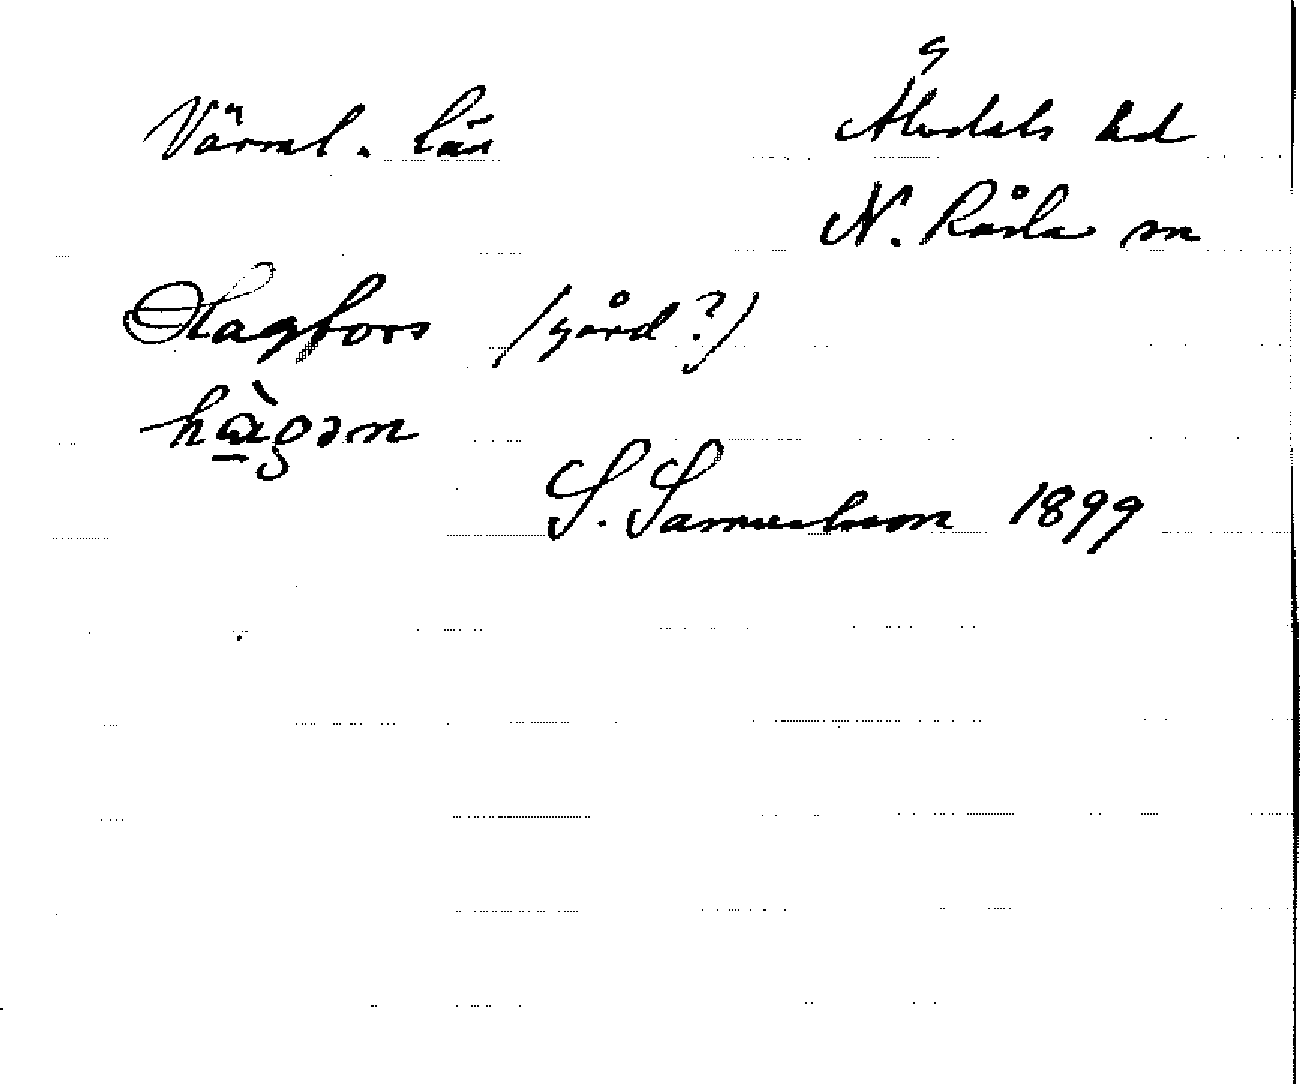 Värml. län Älvdals hd
N. Råda sn
Hagfors (gård?)
hàgən
S. Samuelsson 1899